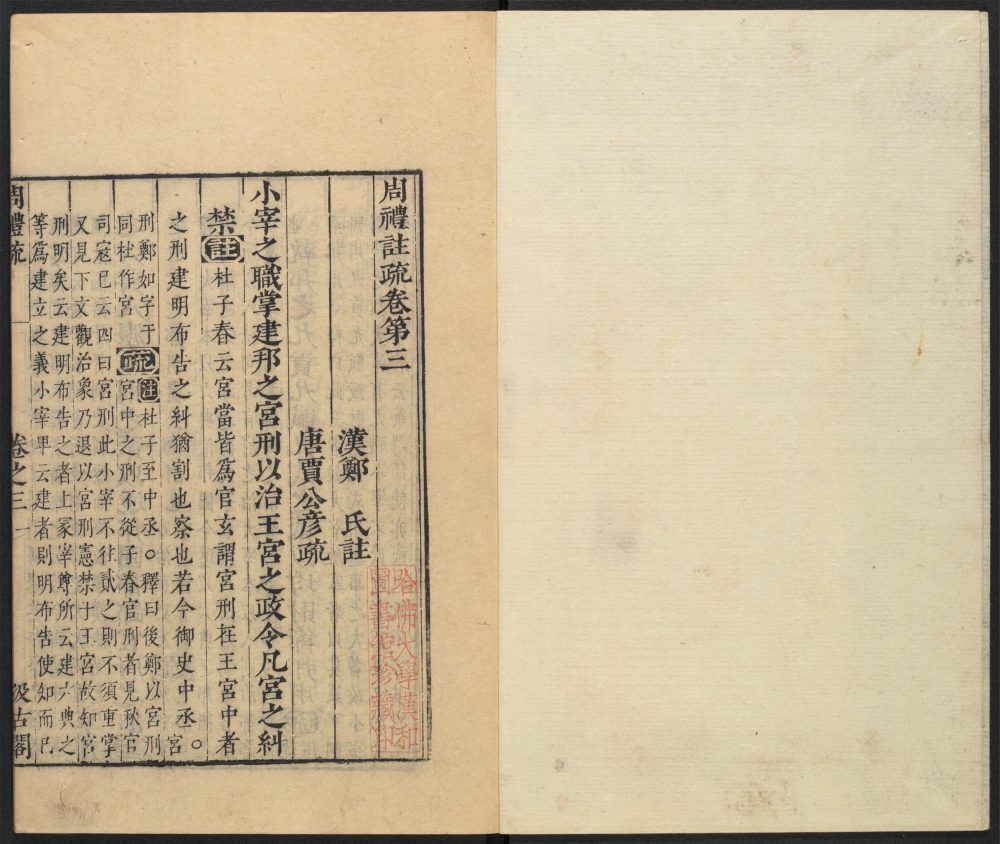 周禮註疏卷第三
漢鄭　氏註
唐賈公彥疏
小宰之職掌建邦之宮刑以治王宮之政令凡宮之糾
禁註杜子春云宮當皆為官玄謂宮刑在王宮中者
之刑建明布告之糾猶割也察也若今御史中丞○宮
刑鄭如字于
同杜作官
疏註杜子至中丞○釋曰後鄭以宮刑
宮中之刑不從子春官刑者見秋官
司寇已云四曰官刑此小宰不往貳之則不須重掌
又見下文觀治象乃退以宮刑憲禁于王宮故知宮
刑明矣云建明布告之者上冡宰尊所云建六典之
等爲建立之義小宰卑云建者則明布告使知而已
周禮疏　卷之三　一　汲古閣
哈佛大學漢和
圖書館珍藏印